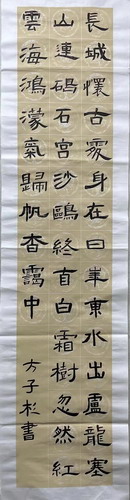 長城懷古處身在日華東水出盧龍塞
山連碣石宮沙鷗終首白霜樹忽然紅
雲海鴻濛氣歸帆杳靄中
方子杉書